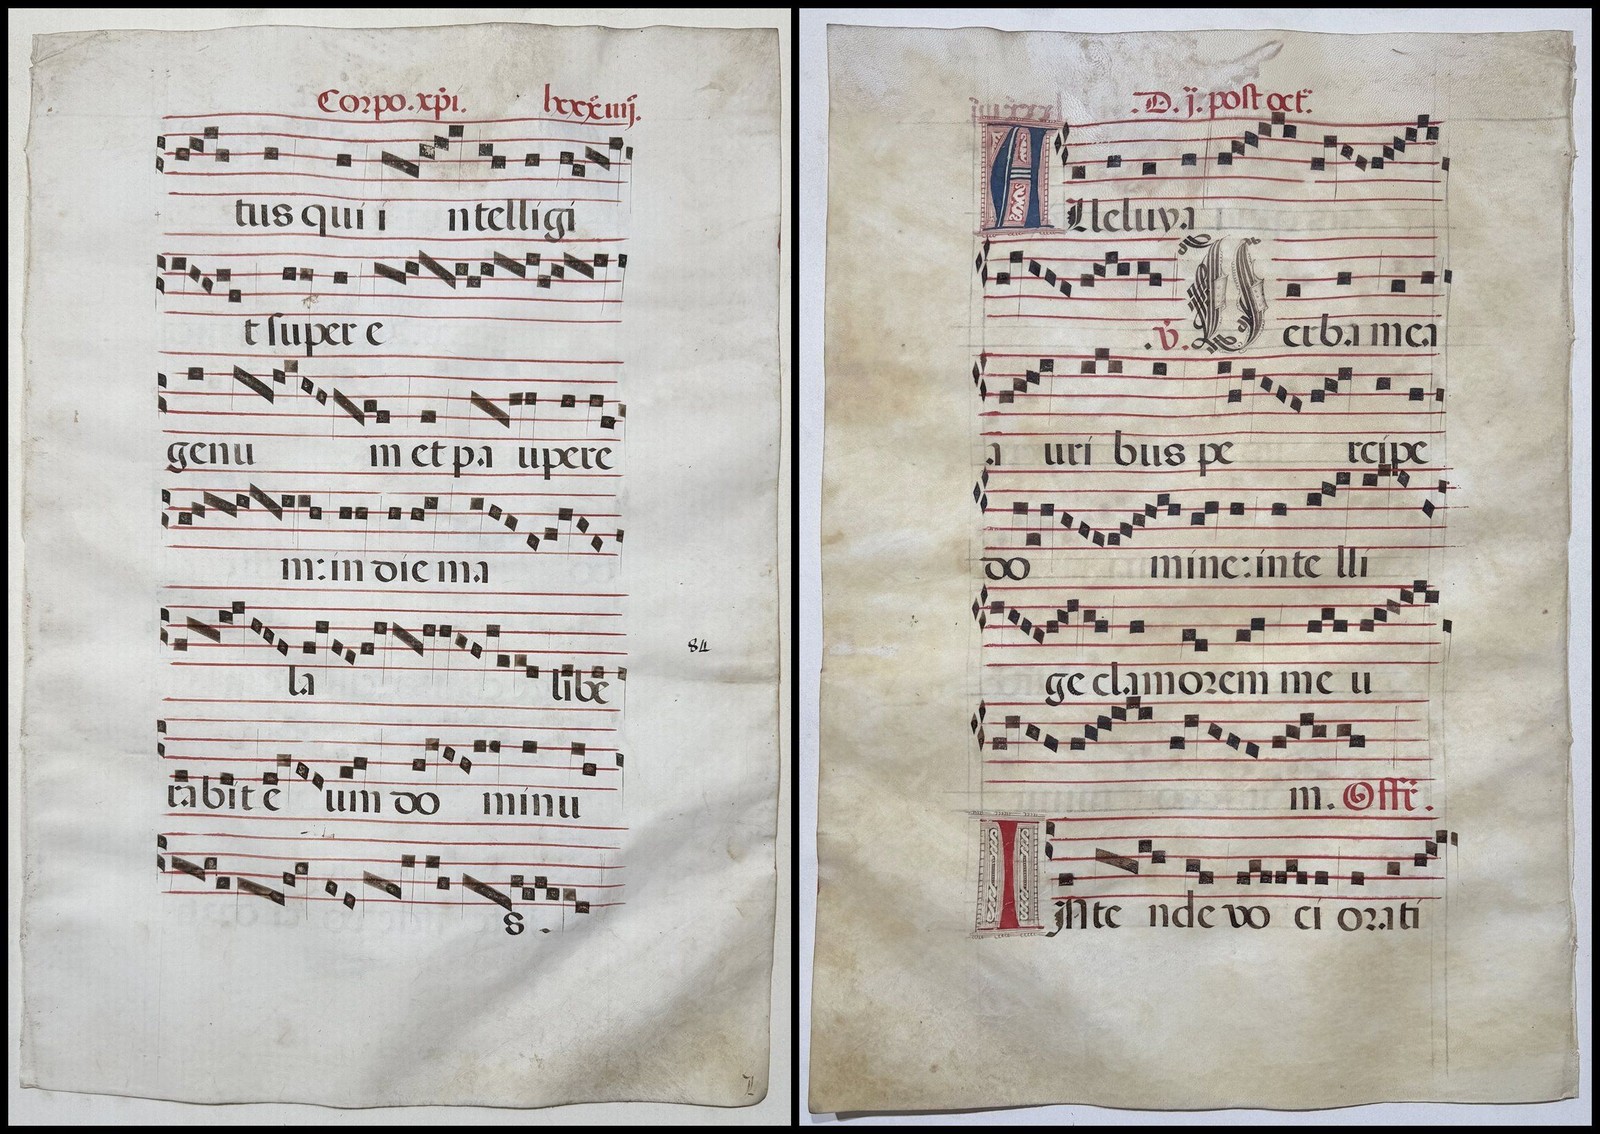 Corpo. xp̄i. lxxxiiij.
tus qui i ntelligi
t super e
genu m et pa upere
m: in die ma
la libe
84
rabit e um do minu
s.
D. j. post oct.
Alleluya
.v̄. Verba mea
a uri bus pe rcipe
do mine: inte lli
ge clamorem me u
m. Offr̄.
Inte nde vo ci orati